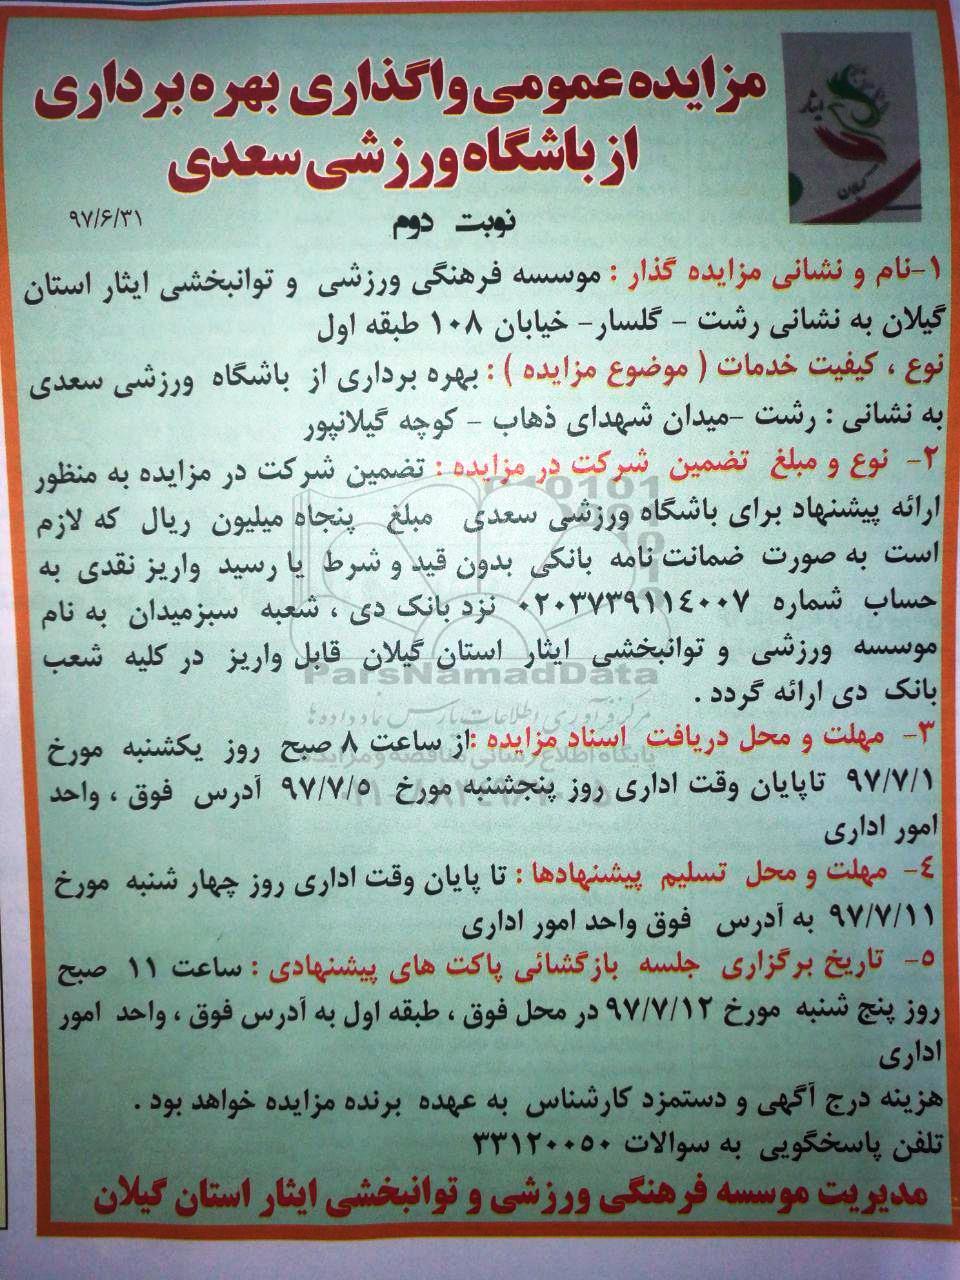 ایثار
گیلان
مزایده عمومی واگذاری بهره برداری
از باشگاه ورزشی سعدی
نوبت دوم
۹۷/۶/۳۱
۱-نام و نشانی مزایده گذار : موسسه فرهنگی ورزشی و توانبخشی ایثار استان
گیلان به نشانی رشت – گلسار- خیابان ۱۰۸ طبقه اول
نوع ، کیفیت خدمات ( موضوع مزایده ) : بهره برداری از باشگاه ورزشی سعدی
به نشانی : رشت –میدان شهدای ذهاب – کوچه گیلانپور
۲- نوع و مبلغ تضمین شرکت در مزایده : تضمین شرکت در مزایده به منظور
ارائه پیشنهاد برای باشگاه ورزشی سعدی مبلغ پنجاه میلیون ریال که لازم
است به صورت ضمانت نامه بانکی بدون قید و شرط یا رسید واریز نقدی به
حساب شماره ۰۲۰۳۷۳۹۱۱۴۰۰۷ نزد بانک دی ، شعبه سبزمیدان به نام
موسسه ورزشی و توانبخشی ایثار استان گیلان قابل واریز در کلیه شعب
بانک دی ارائه گردد .
ParsNamadData
مرکز فرآوری اطلاعات پارس نماد داده ها
۳- مهلت و محل دریافت اسناد مزایده :از ساعت ۸ صبح روز یکشنبه مورخ
پایگاه اطلاع رسانی مناقصه و مزایده
۹۷/۷/۱ تاپایان وقت اداری روز پنجشنبه مورخ ۹۷/۷/۵ آدرس فوق ، واحد
امور اداری
۴- مهلت و محل تسلیم پیشنهادها : تا پایان وقت اداری روز چهار شنبه مورخ
۹۷/۷/۱۱ به آدرس فوق واحد امور اداری
۵- تاریخ برگزاری جلسه بازگشائی پاکت های پیشنهادی : ساعت ۱۱ صبح
روز پنج شنبه مورخ ۹۷/۷/۱۲ در محل فوق ، طبقه اول به آدرس فوق ، واحد امور
اداری
هزینه درج آگهی و دستمزد کارشناس به عهده برنده مزایده خواهد بود .
تلفن پاسخگویی به سوالات ۳۳۱۲۰۰۵۰
مدیریت موسسه فرهنگی ورزشی و توانبخشی ایثار استان گیلان